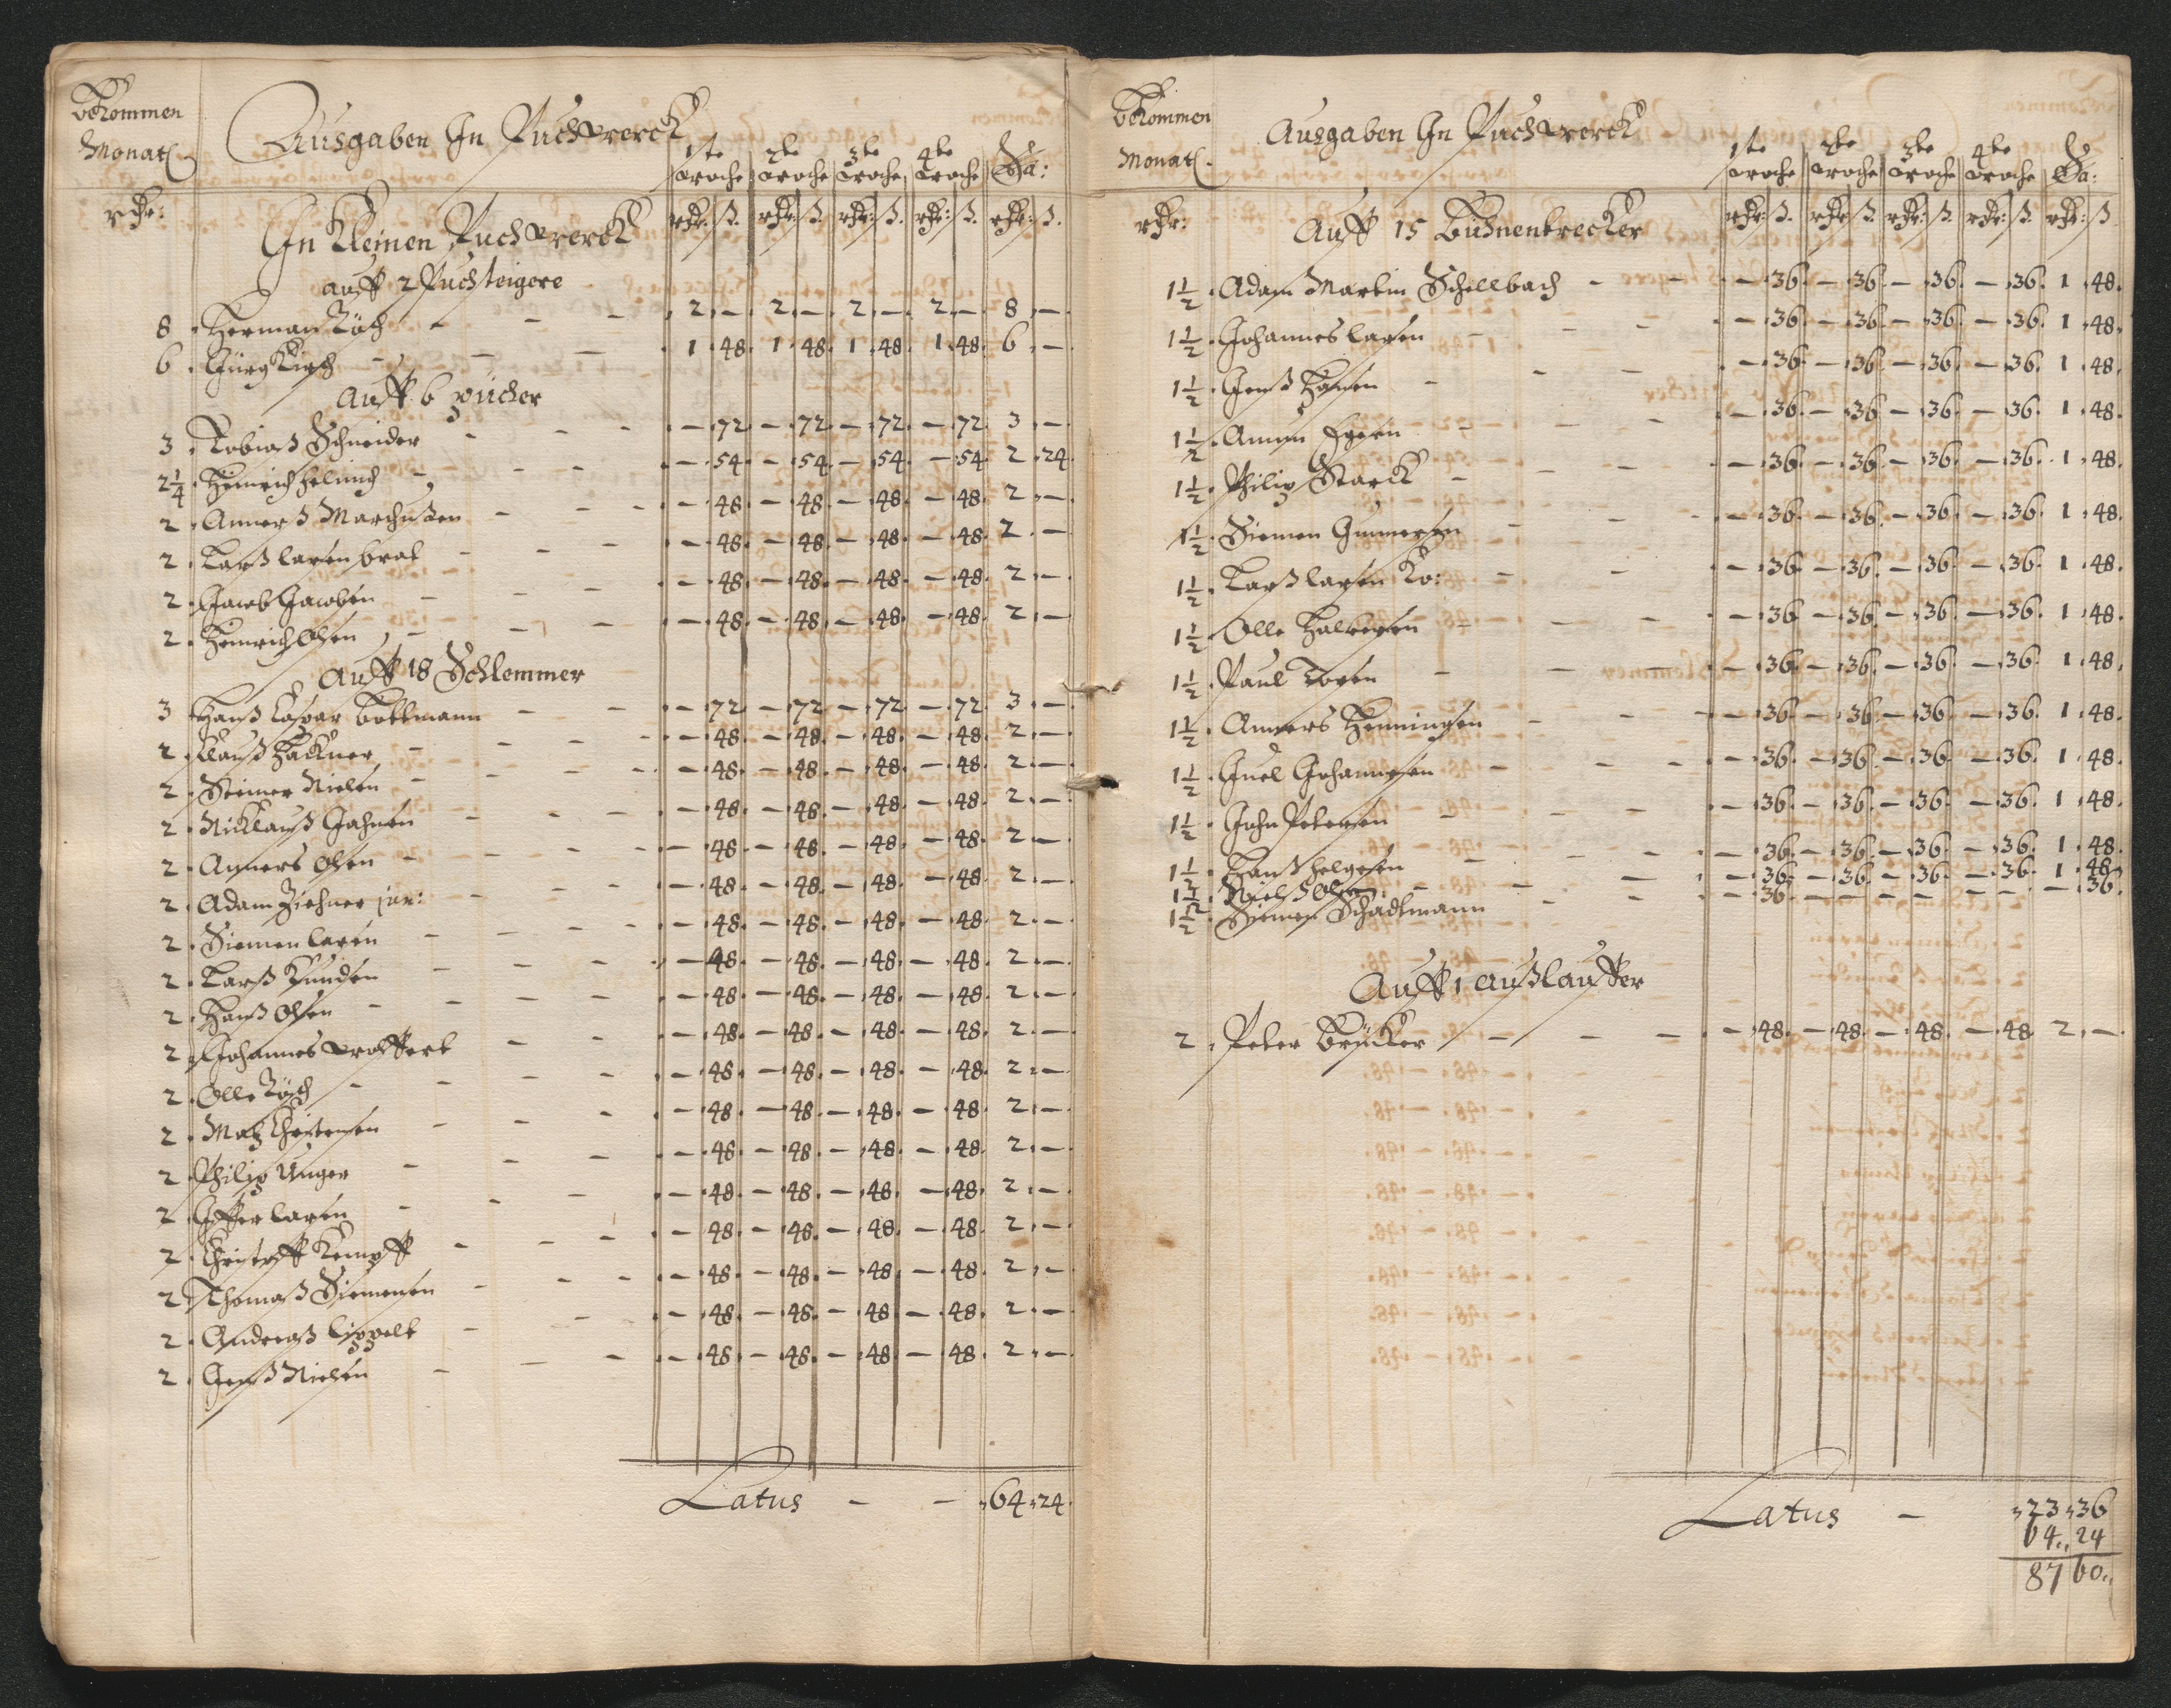 Bekommen
Monatl
Ausgaben In Puchwerck
1te woche 2te woche 3te woche 4te woche Sa:
rdr:
In Kleinen Puchwerck
rdr: ß. rdr: ß. rdr: ß. rdr: ß. rdr: ß.
auff 2 Puchsteigere
8 Herman Röch - - - 2 - 2 - 2 - 2 - 8 -
6 Jürg Kirch - - - 1 48 1 48 1 48 1 48 6 -
Auff 6 pücher
3 Tobiaß Schneider - - - - 72 - 72 - 72 - 72 3 -
2 1/4 Heinrich Helmich - - - - 54 - 54 - 54 - 54 2 24
2 Annerß Marchußen - - - - 48 - 48 - 48 - 48 2 -
2 Larß Larsen brat - - - - 48 - 48 - 48 - 48 2 -
2 Jacob Jacobsen - - - - 48 - 48 - 48 - 48 2 -
2 Heinrich Olsen - - - - 48 - 48 - 48 - 48 2 -
Auff 18 Schlemmer
3 Hanß Caspar Bottmann - - - 72 - 72 - 72 - 72 3 -
2 Clauß Hackner - - - - 48 - 48 - 48 - 48 2 -
2 Steiner Nielsen - - - - 48 - 48 - 48 - 48 2 -
2 Nicklauß Jahnsen - - - - 48 - 48 - 48 - 48 2 -
2 Anners Olsen - - - - 48 - 48 - 48 - 48 2 -
2 Adam Ziehner jun: - - - 48 - 48 - 48 - 48 2 -
2 Siemen Larsen - - - - 48 - 48 - 48 - 48 2 -
2 Larß Knudsen - - - - 48 - 48 - 48 - 48 2 -
2 Hanß Olsen - - - - 48 - 48 - 48 - 48 2 -
2 Johannes Wolffert - - - 48 - 48 - 48 - 48 2 -
2 Olle Röch - - - - 48 - 48 - 48 - 48 2 -
2 Matz Christensen - - - - 48 - 48 - 48 - 48 2 -
2 Philip Unger - - - - 48 - 48 - 48 - 48 2 -
2 Larsen - - - - 48 - 48 - 48 - 48 2 -
2 Christoff Kempff - - - - 48 - 48 - 48 - 48 2 -
2 Thomaß Siemensen - - - - 48 - 48 - 48 - 48 2 -
2 Andreaß Lippelt - - - 48 - 48 - 48 - 48 2 -
2 Jenß Nielsen - - - - 48 - 48 - 48 - 48 2 -
Latus - - 64 24
Bekommen
Monatl.
Ausgaben In Puchwerck
1te woche 2te woche 3te woche 4te woche Sa:
rdr:
Auff 15 Bühnentrecker
rdr: ß. rdr: ß. rdr: ß. rdr: ß. rdr: ß
1 1/2 Adam Martin Schellbach - - - 36 - 36 - 36 - 36 1 48
1 1/2 Johannes Larsen - - - - 36 - 36 - 36 - 36 1 48
1 1/2 Jenß Hansen - - - - 36 - 36 - 36 - 36 1 48
1 1/2 - - - - 36 - 36 - 36 - 36 1 48
1 1/2 Philip Starck - - - - 36 - 36 - 36 - 36 1 48
1 1/2 Siemen Gunnersen - - - - 36 - 36 - 36 - 36 1 48
1 1/2 Larß Larsen Ko: - - - 36 - 36 - 36 - 36 1 48
1 1/2 Olle Halvorsen - - - - 36 - 36 - 36 - 36 1 48
1 1/2 Paul - - - - 36 - 36 - 36 - 36 1 48
1 1/2 Anners Henningsen - - - - 36 - 36 - 36 - 36 1 48
1 1/2 Juel Johannesen - - - - 36 - 36 - 36 - 36 1 48
1 1/2 John Petersen - - - 36 - 36 - 36 - 36 1 48
1 1/2 Hanß Helgesen - - - - 36 - 36 - 36 - 36 1 48
1 1/2 Nielß Olsen - - - - 36 - 36 - 36 - 36 1 48
1 1/2 Siemen Schadtmann - - - 36 - - - - - - - 36
Auff 1 außlauffer
2 Peter Brücker - - - - 48 - 48 - 48 - 48 2 -
Latus - 23 36
64 24
87 60